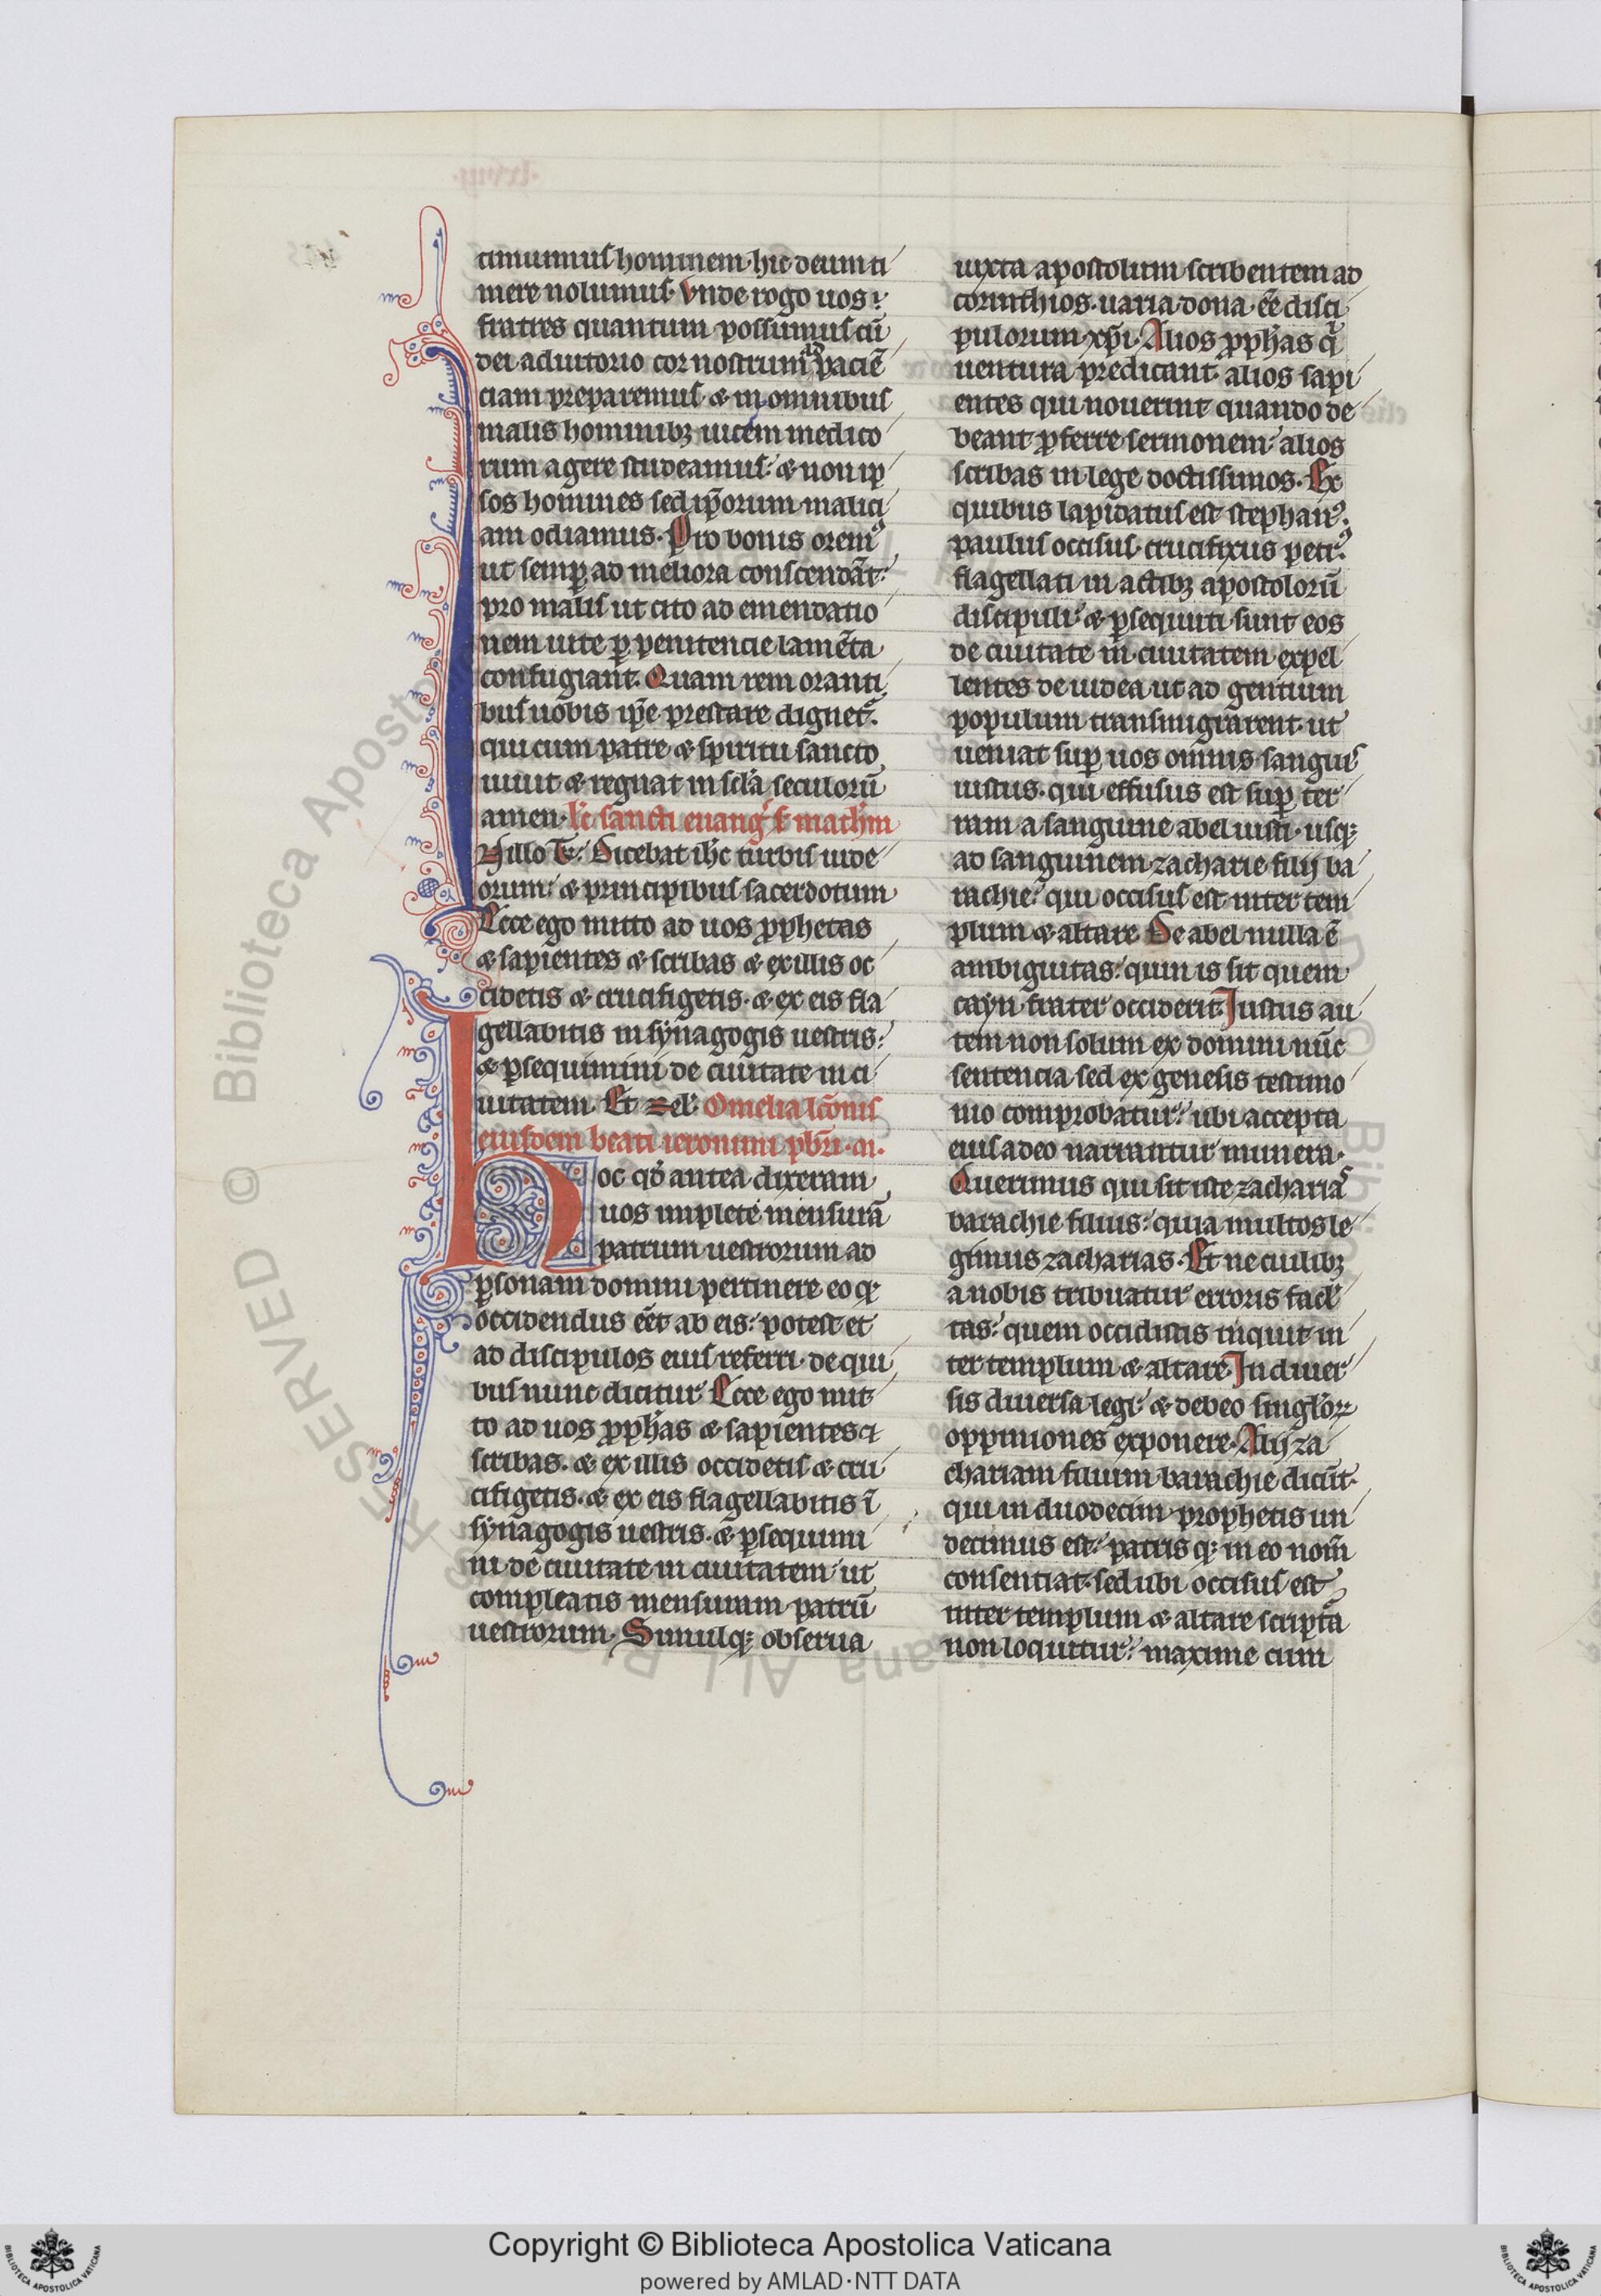 timuimus hominem· hic deum ti
mere nolumus· Vnde rogo uos
fratres quantum possumus cū
dei adiutorio cor nostrum ad paciē
ciam preparemus· & in omnibus
malis hominibꝫ uicem medico
rum agere studeamus· & non ip
sos homines sed ip̄orum malici
am odiamus· Pro bonis oremꝰ
ut semꝑ ad meliora conscendāt·
pro malis ut cito ad emendatio
nem uite ꝑ penitencie lamēta
confugiant· Quam rem oranti
bus uobis ip̄e prestare dignet᷑·
qui cum patre & spiritu sancto
uiuit & regnat in scl̄a seculorū
amen· lc̄ sancti euanḡ s̄ mathm̄
N illo t̄· Dicebat ih̄c turbis iude
orum· & principibus sacerdotum
Ecce ego mitto ad uos ꝓphetas
& sapientes & scribas & ex illis oc
cidetis & crucifigetis· & ex eis fla
gellabitis in synagogis uestris·
& ꝑsequimini de ciuitate in ci
uitatem· Et rel̄· Omelia lc̄onis
eiusdem beati ieronimi pb̄ri·
Hoc qd̄ antea dixeram
uos implete mensurā
patrum uestrorum ad
ꝑsonam domini pertinere eo qꝫ
occidendus eēt ab eis· potest et
ad discipulos eius referri· de qui
bus nunc dicitur Ecce ego mit
to ad uos ꝓph̄as & sapientes &
scribas· & ex illis occidetis & cru
cifigetis· & ex eis flagellabitis ī
synagogis uestris· & ꝑsequimi
ni de ciuitate in ciuitatem ut
compleatis mensuram patrū
uestrorum· Simulqꝫ obserua
iuxta apostolum scribentem ad
corinthios· uaria dona eē disci
pulorum xp̄i· Alios ꝓph̄as q̄
uentura predicant· alios sapi
entes qui nouerint quando de
beant ꝓferre sermonem· alios
scribas in lege doctissimos· Ex
quibus lapidatus est stephanꝰ·
paulus occisus· crucifixus petrꝰ·
flagellati in actibꝫ apostolorū
discipuli· & ꝑsequuti sunt eos
de ciuitate in ciuitatem· expel
lentes de iudea ut ad gentium
populum transmigrarent· ut
ueniat suꝑ uos omnis sanguis
iustus· qui effusus est suꝑ ter
ram a sanguine abel iusti· usqꝫ
ad sanguinem zacharie filij ba
rachie· qui occisus est inter tem
plum & altare De abel nulla ē
ambiguitas· quin is sit quem
cayn frater occiderit· Iustus au
tem non solum ex domini nūc
sentencia sed ex genesis testimo
nio comprobatur· ubi accepta
eius a deo narrantur munera·
Querimus qui sit iste zacharias
barachie filius· quia multos le
gimus zacharias· Et ne cuilibꝫ
a nobis tribuatur erroris facl̄
tas· quem occidistis inquit in
ter templum & altare· In diuer
sis diuersa legi· & debeo singl̄oꝝ
oppiniones exponere· Alij za
chariam filium barachie dicūt·
qui in duodecim prophetis un
decimus est· patris qꝫ in eo nom̄
consentiat· sed ubi occisus est
inter templum & altare scriptā
non loquitur· maxime cum
Copyright © Biblioteca Apostolica Vaticana
powered by AMLAD·NTT DATA